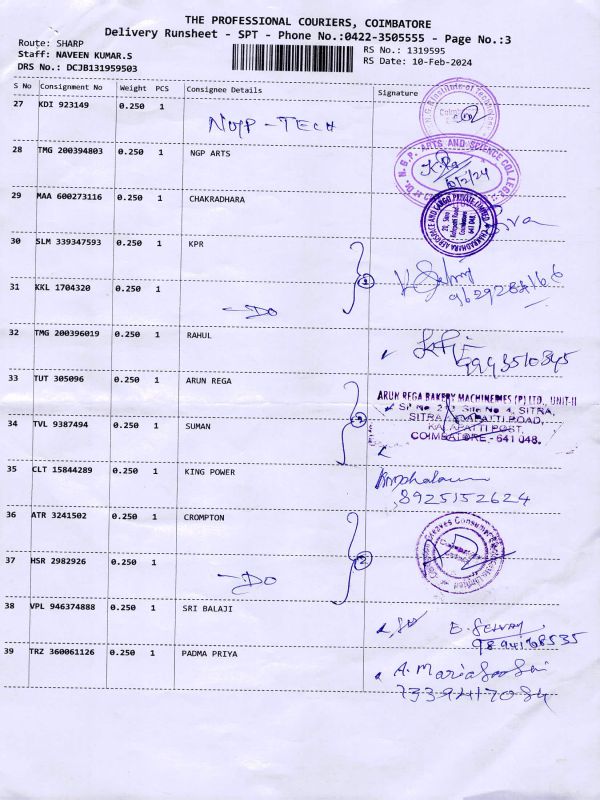 THE PROFESSIONAL COURIERS, COIMBATORE
Delivery Runsheet - SPT - Phone No.:0422-3505555 - Page No.:3
Route: SHARP
Staff: NAVEEN KUMAR.S
DRS No.: DCJB131959503
RS No.: 1319595
RS Date: 10-Feb-2024
S No Consignment No Weight PCS Consignee Details Signature
27 KDI 923149 0.250 1 NGP-TECH
28 TMG 200394803 0.250 1 NGP ARTS
DR. N.G.P. ARTS AND SCIENCE COLLEGE
29 MAA 600273116 0.250 1 CHAKRADHARA
CHAKRADHARA AEROSPACE AND CARGO PRIVATE LIMITED
30 SLM 339347593 0.250 1 KPR
31 KKL 1704320 0.250 1 -DO
32 TMG 200396019 0.250 1 RAHUL
9943510845
33 TUT 305096 0.250 1 ARUN REGA
ARUN REGA BAKERY MACHINERIES (P) LTD., UNIT-II
Site No 4, SITRA,
34 TVL 9387494 0.250 1 SUMAN
POST,
COIMBATORE - 641 048.
35 CLT 15844289 0.250 1 KING POWER
8925152624
36 ATR 3241502 0.250 1 CROMPTON
Crompton Greaves Consumer Electricals Limited
37 HSR 2982926 0.250 1 -DO
2
38 VPL 946374888 0.250 1 SRI BALAJI
39 TRZ 360061126 0.250 1 PADMA PRIYA